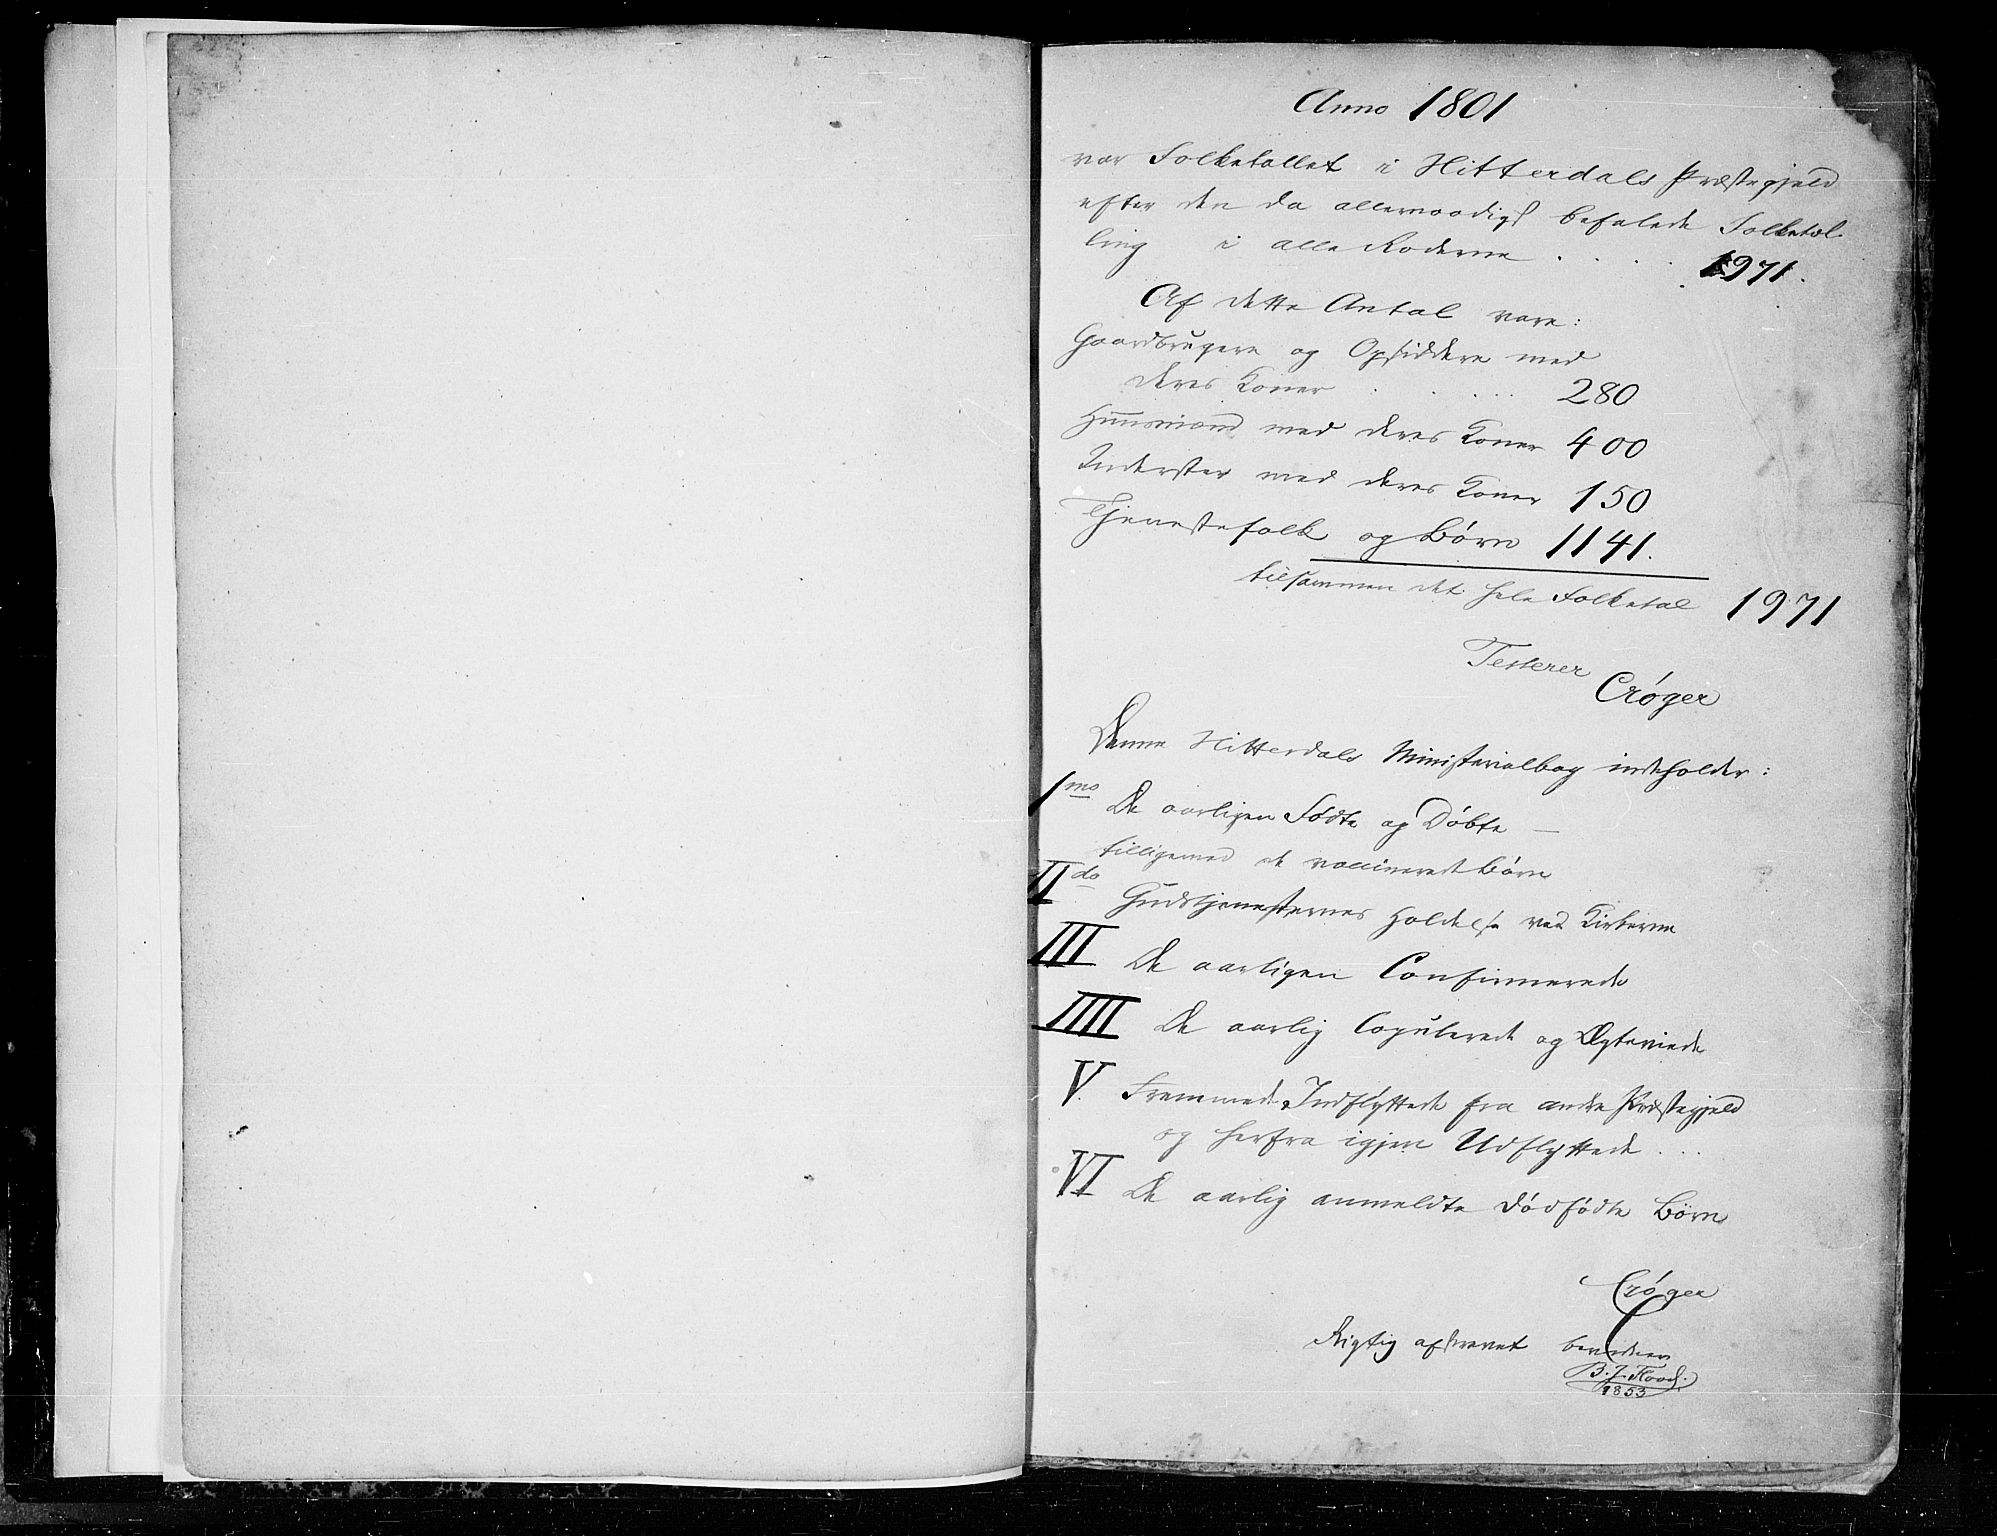 Anno 1801
var Folketallet i Hitterdals Præstegjeld
efter den da allernaadigst befalede Folketæl-
ling i alle Roderne . . . . 1971.
Af dette Antal vare:
Gaardbrugere og Opsiddere med
deres Koner . . . . . 280
Huusmænd med deres Koner 400
Inderster med deres Koner 150
Tjenestefolk og Børn 1141.
tilsammen det hele Folketal 1971
Testerer
Crøger
Denne Hitterdals Ministerialbog indeholder:
1mo De aarligen Fødte og Døbte —
tilligemed de vaccinerede Børn
IIdo Gudstjenesternes Holdelse ved Kirkerne
III De aarligen Confirmerede
IIII De aarlig Copulerede og Ægteviede
V. Fremmede Indflyttede fra andre Præstegjeld
og herfra igjen Udflyttede . . .
VI De aarlig anmeldte dødfødte Børn
Crøger
Rigtig afskrevet bevidner
B. J. Flood.
1853